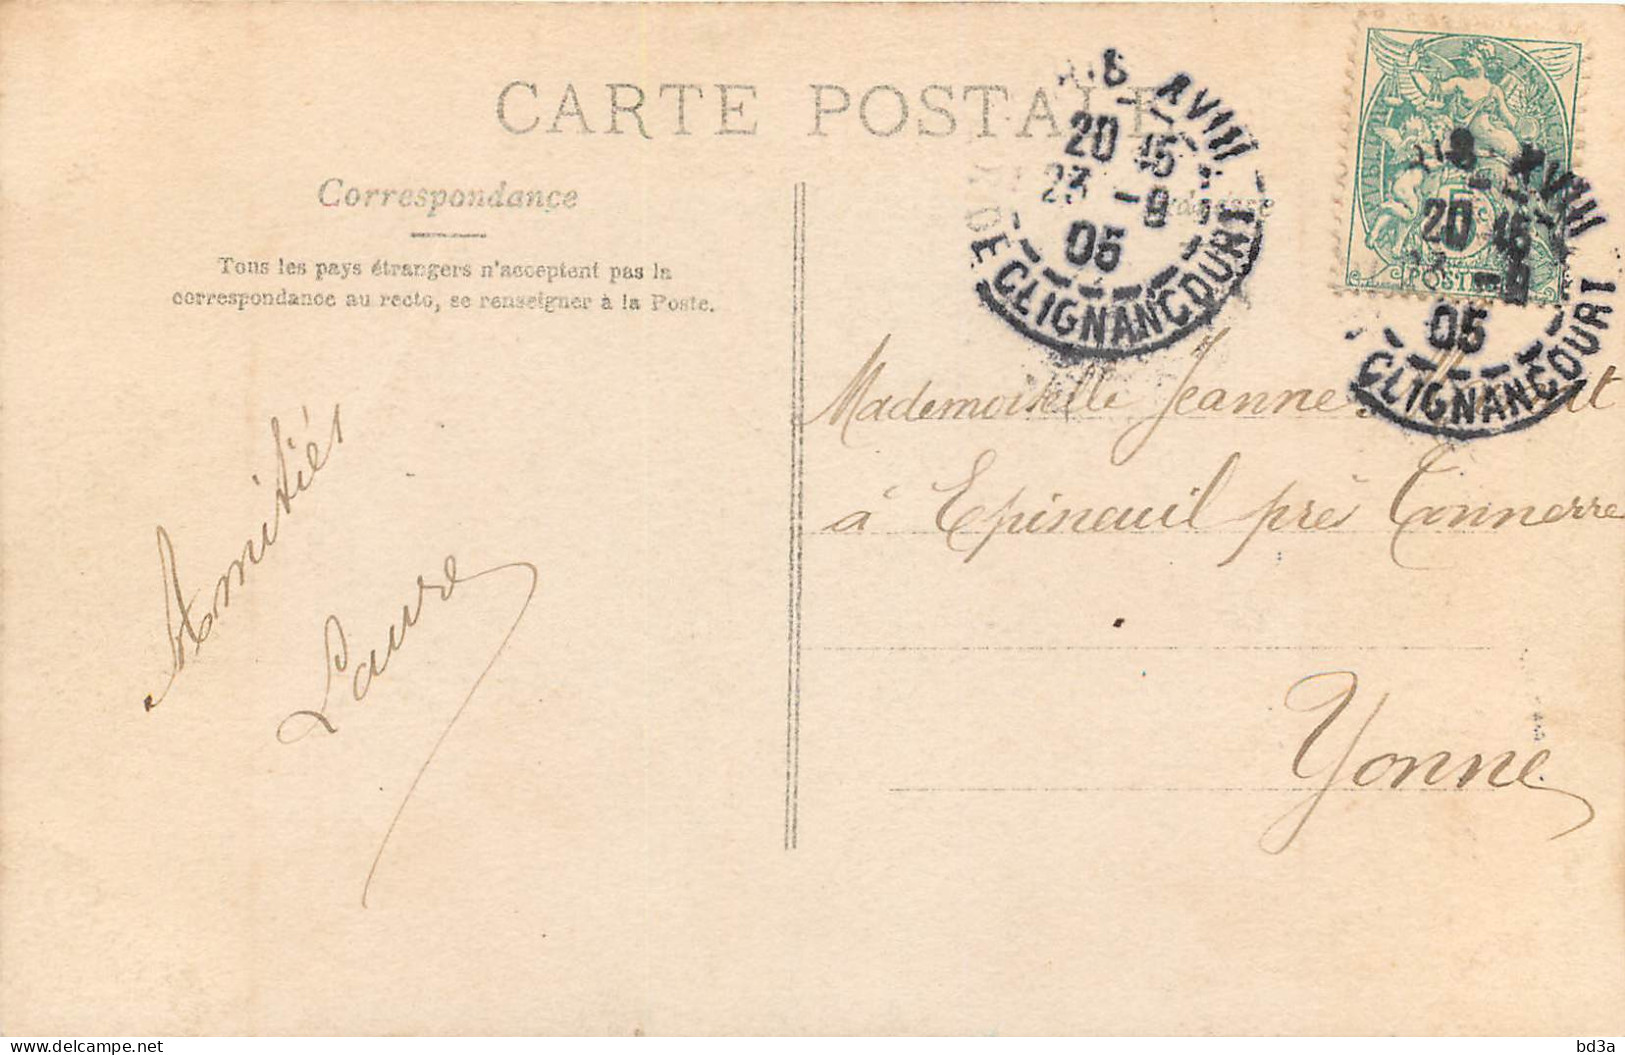 CARTE POSTALE
Correspondance
Tous les pays étrangers n'acceptent pas la
correspondance au recto, se renseigner à la Poste.
Amitiés
Laure
XVIII
20 15
23 -9
05
DE CLIGNANCOURT
XVIII
20 15
-9
05
CLIGNANCOURT
5
POSTE
Mademoiselle Jeanne
à Epineuil près Tonnerre
Yonne
bd3a